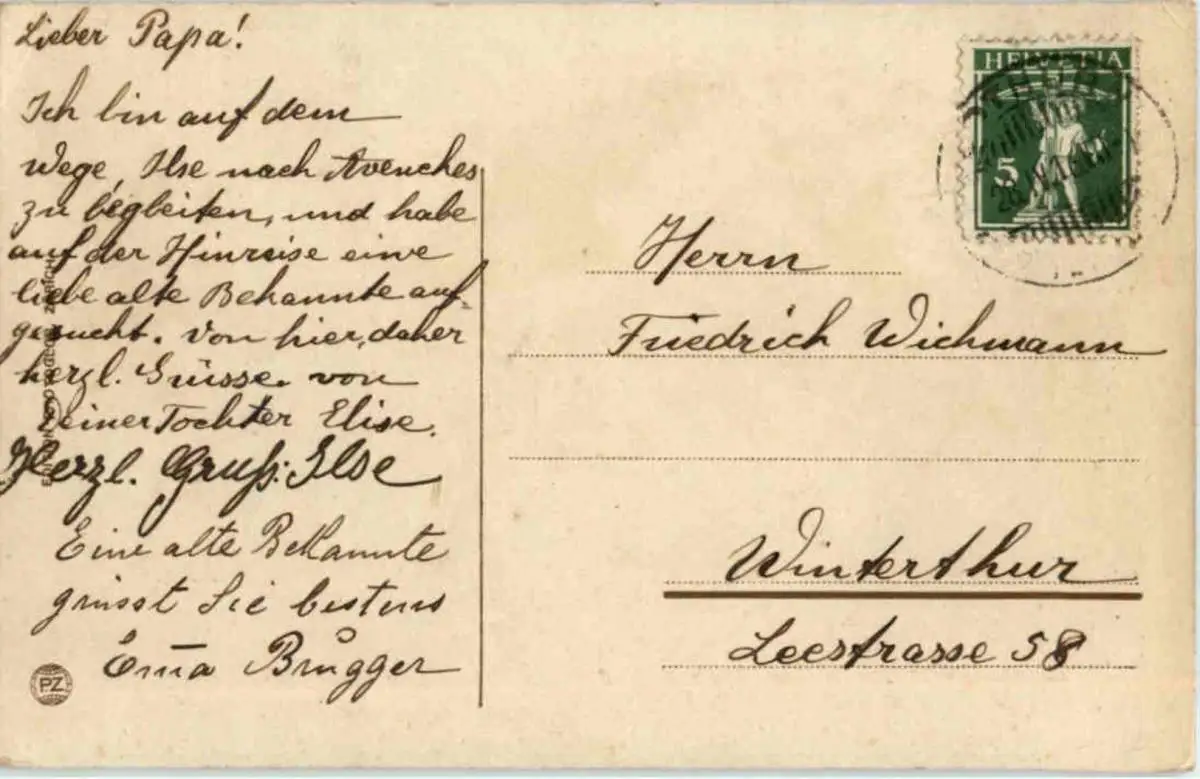 Lieber Papa!
Ich bin auf dem
Wege, Ilse nach Avenches
zu begleiten, und habe
auf der Hinreise eine
liebe alte Bekannte auf-
gesucht. Von hier, daher
herzl. Grüsse. von
Deiner Tochter Elise.
Herzl. Gruß: Ilse
Eine alte Bekannte
grüsst Sie bestens
Em̄a Brugger
PZ
HELVETIA
5
Herrn
Friedrich Wichmann
Winterthur
Leestrasse 58